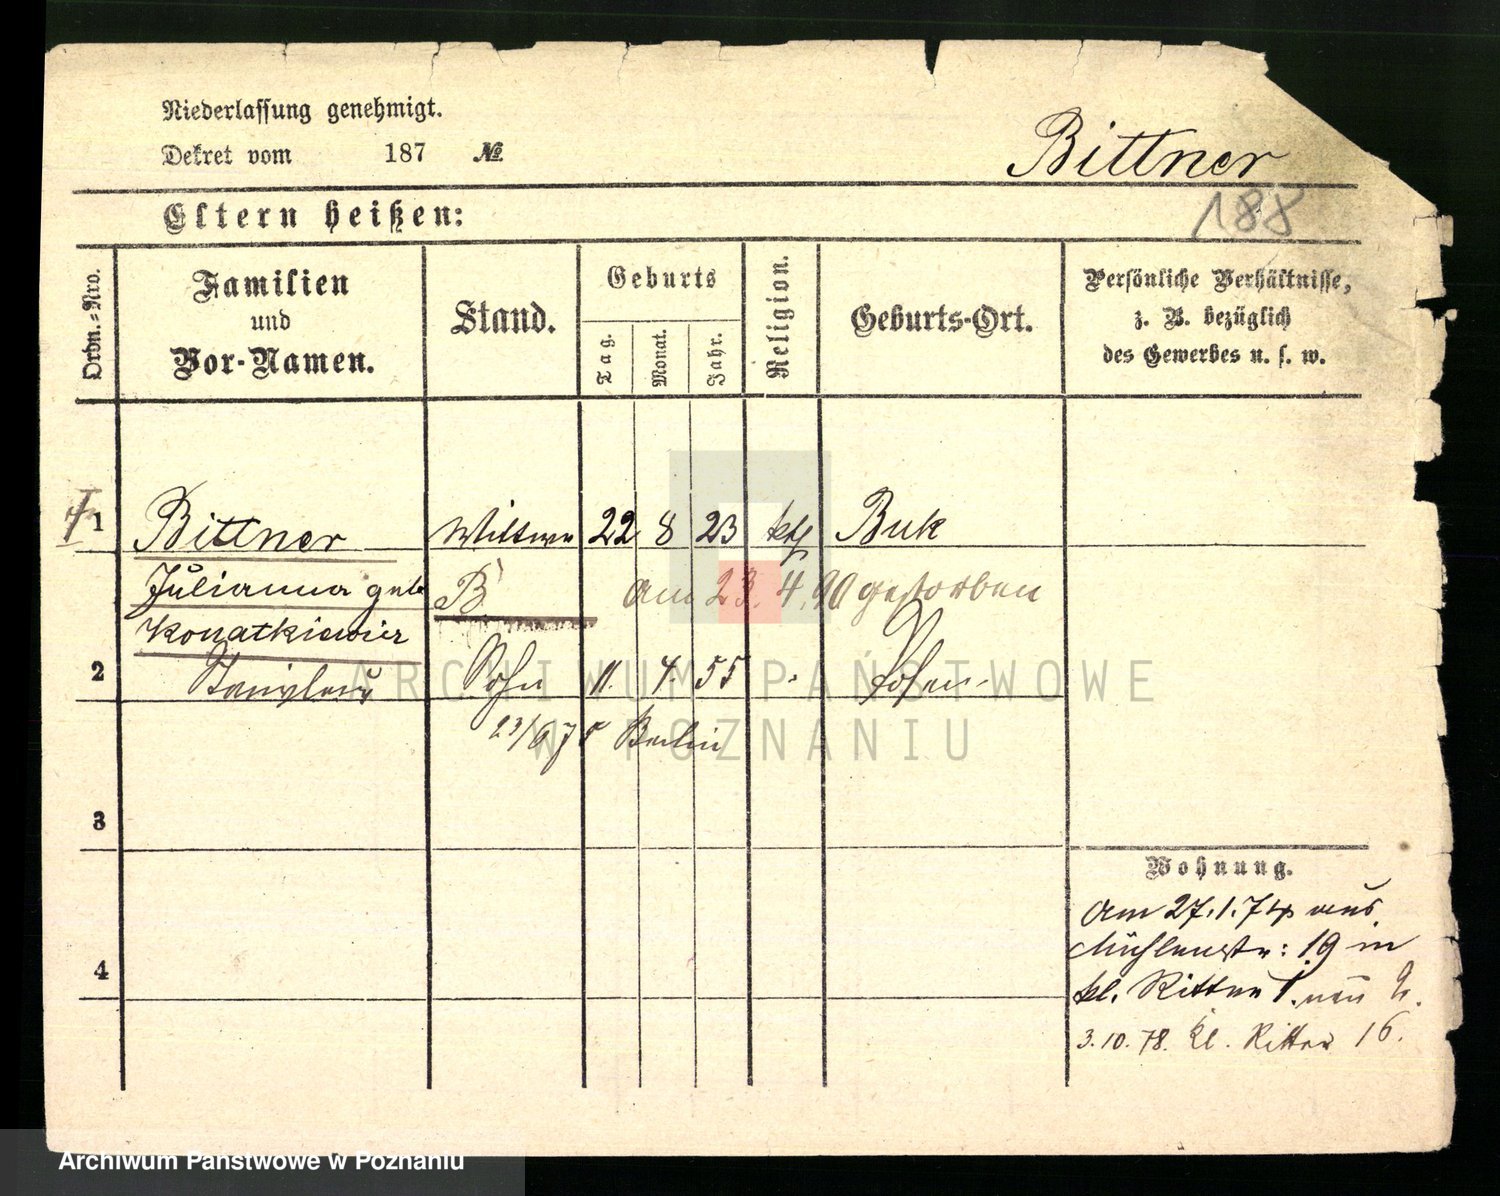 Niederlassung genehmigt.
Dekret vom 187 №
Bittner
188
Eltern heißen:
Ordn.=Nro.
Familien
und
Vor-Namen.
Stand.
Geburts
Tag.
Monat.
Jahr.
Religion.
Geburts-Ort.
Persönliche Verhältnisse,
z. B. bezüglich
des Gewerbes u. s. w.
1 Bittner Wittwe 22 8 23 kth Buk
Julianna geb B. am 23. 4. 90 gestorben
Konatkiewicz
2 Stanislaus Sohn 11. 4. 55 Posen
23/6 75 Berlin
3
4
Wohnung.
Am 27.1.74 aus
Mühlenstr: 19 in
kl. Ritter 1. neu 2.
3.10.78. kl. Ritter 16.
ARCHIWUM PAŃSTWOWE
W POZNANIU
Archiwum Państwowe w Poznaniu